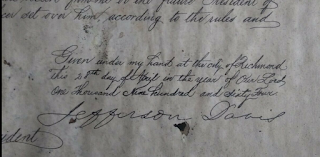 from me or the future President of
over him, according to the rules and
Given under my hand at the city of Richmond
this 25th day of Sept in the year of Our Lord,
One thousand Nine hundred and Sixty Four
Jefferson Davis